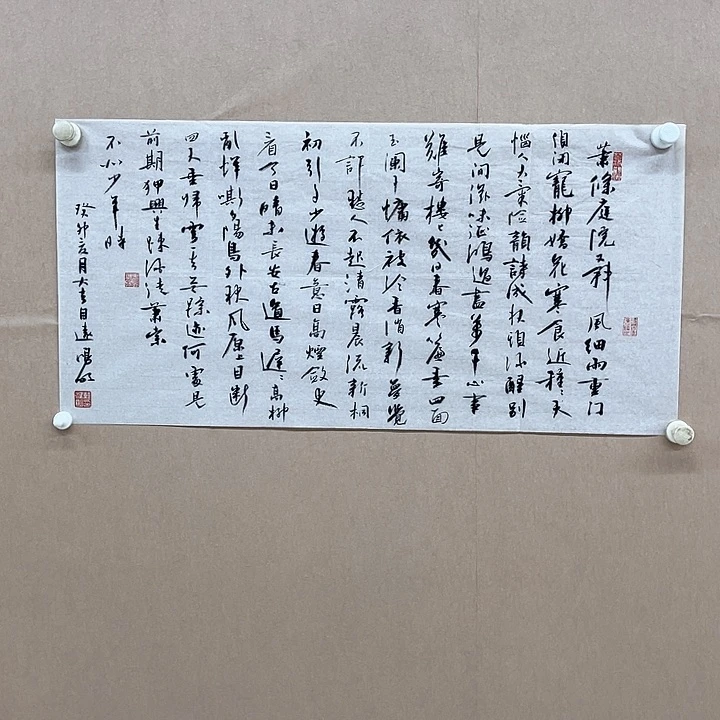 萧條庭院又斜風细雨重门
須闭寵柳嬌花寒食近種種天
惱人天氣险韻詩成扶頭酒醒别
是闲滋味征鴻過盡萬千心事
難寄樓上幾日春寒簾垂四面
玉闌干慵倚被冷香消新夢覺
不許愁人不起清露晨流新桐
初引多少遊春意日高煙斂更
看今日晴未長安古道馬遲遲高柳
亂蟬嘶夕陽鳥外秋風原上目断
四天垂歸雲一去無蹤迹何處是
前期狎興生疎酒徒萧索
不似少年時
癸卯亥月大吉目遠